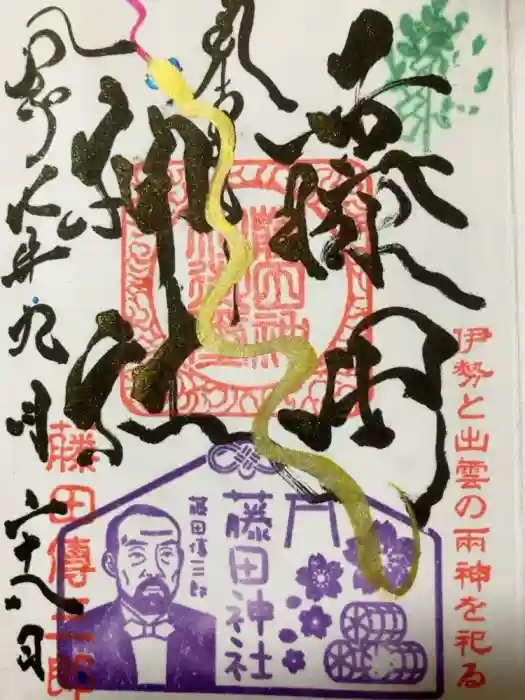 伊勢と出雲の両神を祀る
藤田
神社
奉拝
九月二十八日
藤田傳三郎
藤田神社
藤田傳三郎